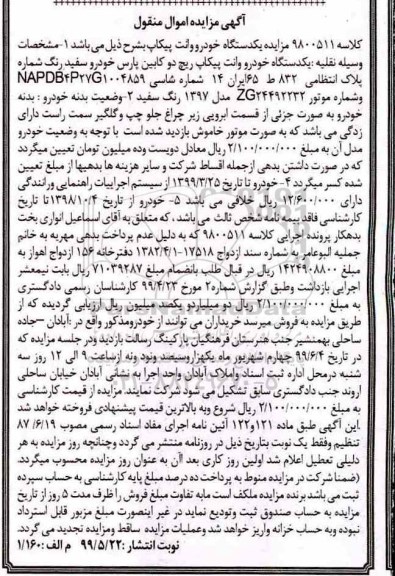 آگهی مزایده اموال منقول
کلاسه ۹۸۰۰۵۱۱ مزایده یکدستگاه خودرو وانت پیکاپ بشرح ذیل می باشد ۱-مشخصات
وسیله نقلیه :یکدستگاه خودرو وانت پیکاپ ریچ دو کابین پارس خودرو سفید رنگ شماره
پلاک انتظامی ۸۳۲ ط ۶۵ایران ۱۴ شماره شاسی NAPDB۴P۲۷G۱۰۰۴۸۵۹
وشماره موتور ZG۲۴۴۹۲۲۳۲ مدل ۱۳۹۷ رنگ سفید ۲-وضعیت بدنه خودرو : بدنه
خودرو به صورت جزئی از قسمت ابرویی زیر چراغ جلو چپ وگلگیر سمت راست دارای
زدگی می باشد که به صورت موتور خاموش بازدید شده است با توجه به وضعیت خودرو
مدل آن به مبلغ ۲/۱۰۰/۰۰۰/۰۰۰ ریال معادل دویست وده میلیون تومان تعیین میگردد
که در صورت داشتن بدهی ازجمله اقساط شرکت و سایر هزینه ها بدهیها از مبلغ تعیین
شده کسر میگردد ۴- خودرو تا تاریخ ۱۳۹۹/۳/۲۵ از سیستم اجراییات راهنمایی ورانندگی
دارای ۱۲/۶۰۰/۰۰۰ ریال خلافی می باشد ۵- خودرو از تاریخ ۱۳۹۸/۱۰/۴ تا تاریخ
کارشناسی فاقد بیمه نامه شخص ثالث می باشد ، که متعلق به آقای اسماعیل انواری بخت
بدهکار پرونده اجرایی کلاسه ۹۸۰۰۵۱۱ که به دلیل عدم پرداخت بدهی مهریه به خانم
جمیله البوعامر به شماره سند ازدواج ۱۷۵۱۸-۱۳۸۲/۴/۱ دفترخانه ۱۵۶ ازدواج اهواز به
مبلغ ۱۴۲۴۹۰۸۸۰۰ ریال در قبال طلب بانضمام مبلغ ۷۱۰۳۹۲۸۷ ریال بابت نیمعشر
اجرایی بازداشت وطبق گزارش شماره۲ مورخ ۹۹/۴/۲۳ کارشناسان رسمی دادگستری
به مبلغ ۲/۱۰۰/۰۰۰/۰۰۰ ریال دو میلیاردو یکصد میلیون ریال ارزیابی گردیده که از
طریق مزایده به فروش میرسد خریداران می توانند ازخودرومذکور واقع در :آبادان –جاده
ساحلی بهمنشیر جنب هنرستان فرهنگیان پارکینگ رسالت بازدید ودر جلسه مزایده که
در تاریخ ۹۹/۶/۴ چهارم شهریور ماه یکهزاروسیصد ونود ونه ازساعت ۹ الی ۱۲ روز سه
شنبه درمحل اداره ثبت اسناد واملاک آبادان واحد اجرا به نشانی آبادان خیابان ساحلی
اروند جنب دادگستری سابق تشکیل می شود شرکت نمایند. مزایده از قیمت کارشناسی
به مبلغ ۲/۱۰۰/۰۰۰/۰۰۰ ریال شروع وبه بالاترین قیمت پیشنهادی فروخته خواهد شد
.این آگهی طبق ماده ۱۲۱و۱۲۲ آئین نامه اجرای مفاد اسناد رسمی مصوب ۸۷/۶/۱۹
تنظیم وفقط یک نوبت بتاریخ ذیل در روزنامه منتشر می گردد وچنانچه روز مزایده به هر
دلیلی تعطیل اعلام شد اولین روز کاری بعد ازآن به عنوان روز مزایده محسوب میگردد.
(ضمنا شرکت در مزایده منوط به پرداخت ده درصد مبلغ پایه کارشناسی به حساب سپرده
ثبت می باشد برنده مزایده ملکف است مابه تفاوت مبلغ فروش را ظرف مدت ۵ روز از تاریخ
مزایده به حساب صندوق ثبت وتودیع نماید در غیر اینصورت مبلغ مزبور قابل استرداد
نبوده وبه حساب خزانه واریز خواهد شد وعملیات مزایده ساقط ومزایده تجدید می گردد.
نوبت انتشار :۹۹/۵/۲۲ م الف :۱/۱۶۰